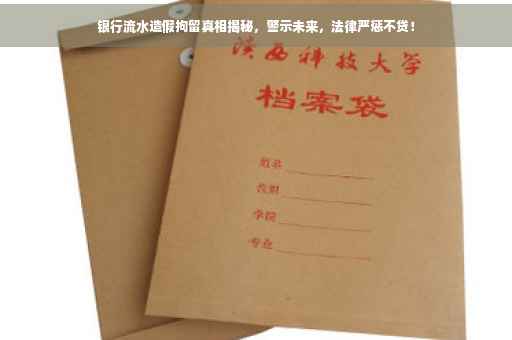 银行流水造假拘留真相揭秘，警示未来，法律严惩不贷！
陕西科技大学
档案袋
姓名
学院
专业